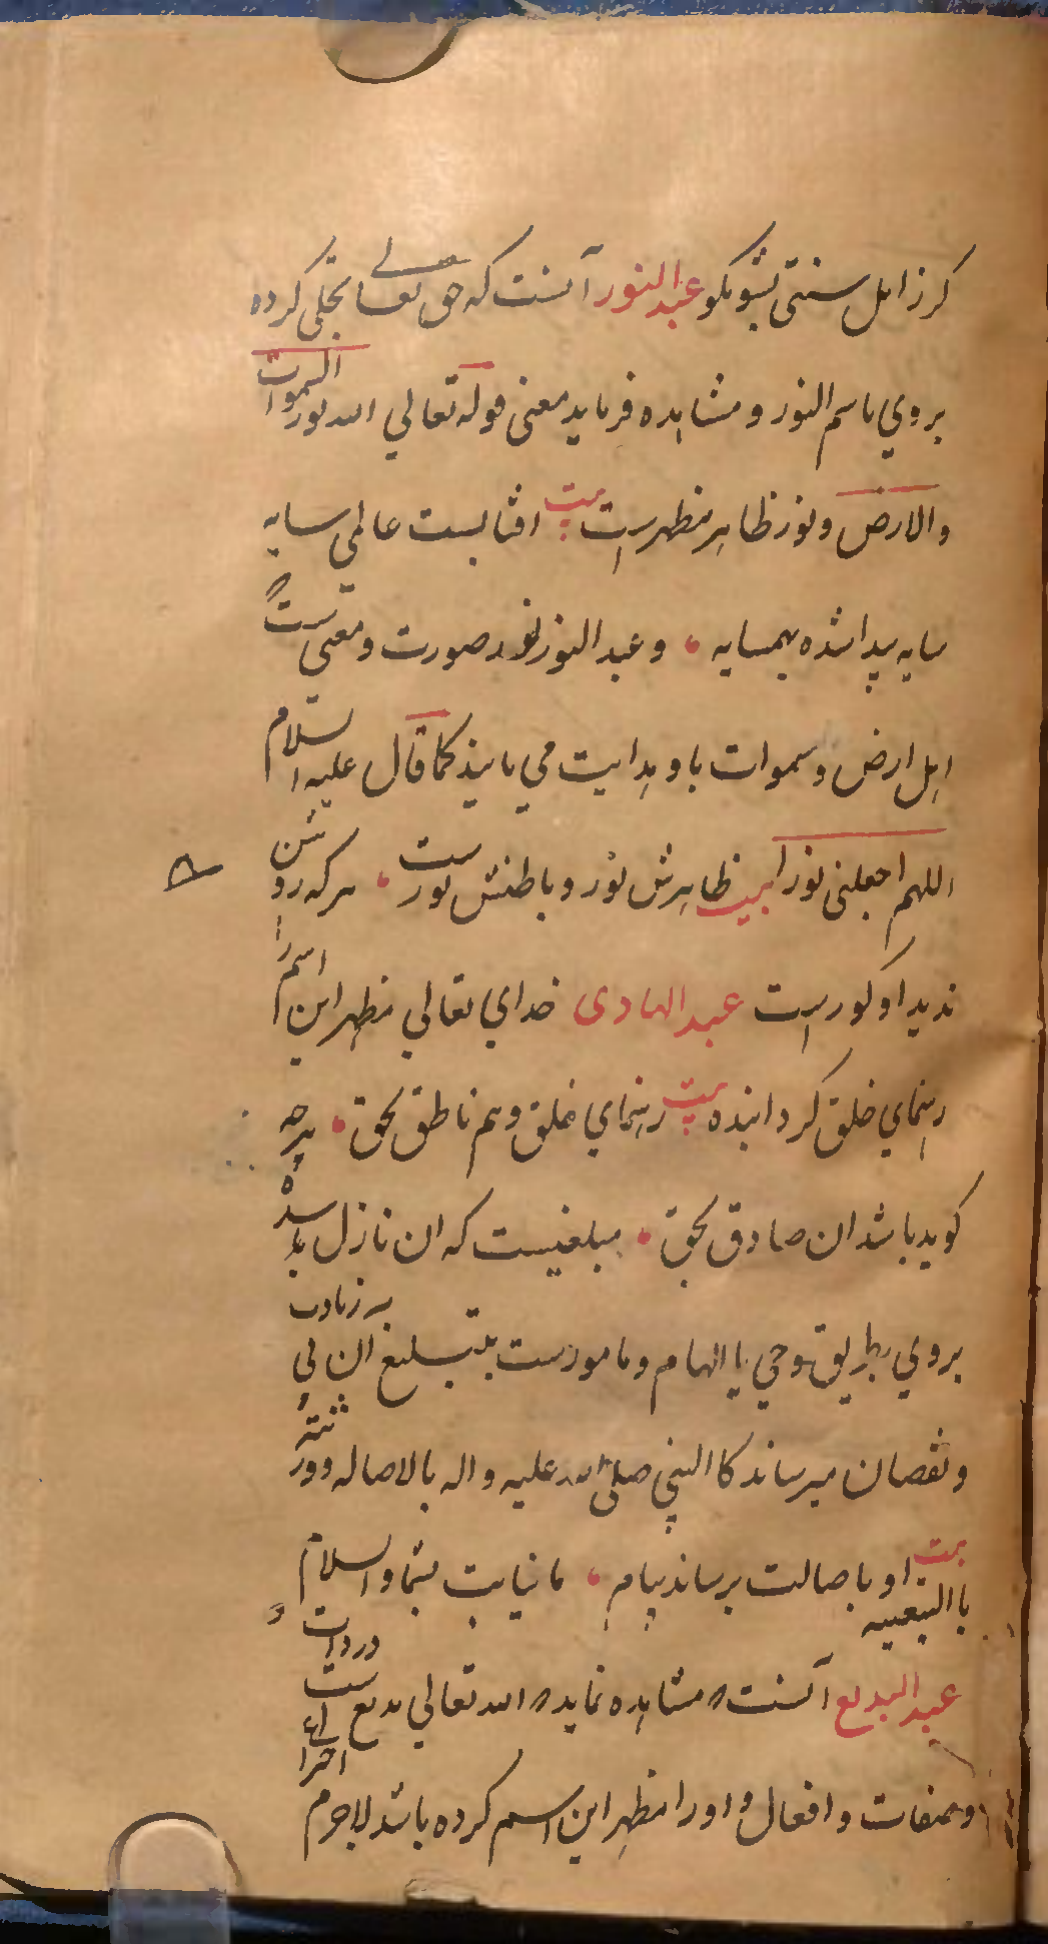 کر ز اهل سنتی بشو نکو عبد النور آنست که حق تعالی تجلی کرده
بروی باسم النور و مشاهده فرماید معنی قوله تعالی الله نور السموات
والارض و نور ظاهر مظهرست بیت افتابست عالمی سایه
سایه پیدا شده بهمسایه و عبد النور نور صورت و معنی است و
اهل ارض و سموات باو هدایت می یابند کما قال علیه السلام
اللهم اجعلنی نورا بیت ظاهرش نور و باطنش نورست هر که روشن
ندید او کورست عبد الهادی خدای تعالی مظهر این اسم را
رهنمای خلق کردانیده بیت رهنمای خلق و هم ناطق بحق هر چه
کوید باشد ان صادق بحق مبلغیست که ان نازل باشد
بروی بطریق وحی یا الهام و مامورست بتبلیغ ان بی زیادت
و نقصان میرساند کالنبی صلی الله علیه واله بالاصاله و ورثته
باالتبعیه بیت او باصالت برساند پیام ما نیابت بشما والسلام
عبد البدیع آنست که مشاهده نماید که الله تعالی بدیع است در ذات و
وصفات و افعال و اورا مظهر این اسم کرده باشد لاجرم